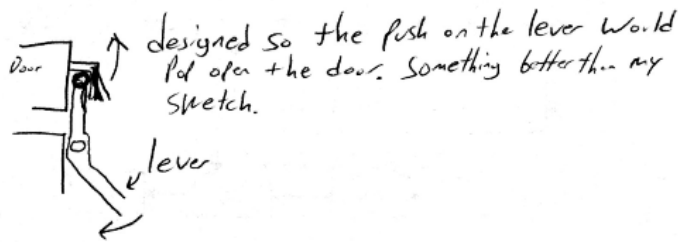 designed so the push on the lever would
Door
pop open the door. Something better than my
sketch.
lever